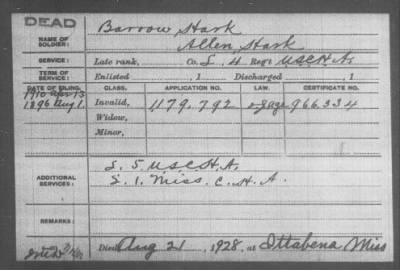 DEAD
NAME OF SOLDIER: Barrow Stark
Allen Stark
SERVICE: Late rank, Co. L, 4 Reg't U.S.C.H.A.
TERM OF SERVICE: Enlisted , 1 Discharged , 1
DATE OF FILING. CLASS. APPLICATION NO. LAW. CERTIFICATE NO.
1910 Apr 13
1896 Aug 1. Invalid, 1179.792 of age 966334
Widow,
Minor,
L. 5 U.S.C.H.A.
ADDITIONAL SERVICES: L. 1. Miss. C. H. A.
REMARKS:
Died Aug 21, 1928, at Ittabena Miss